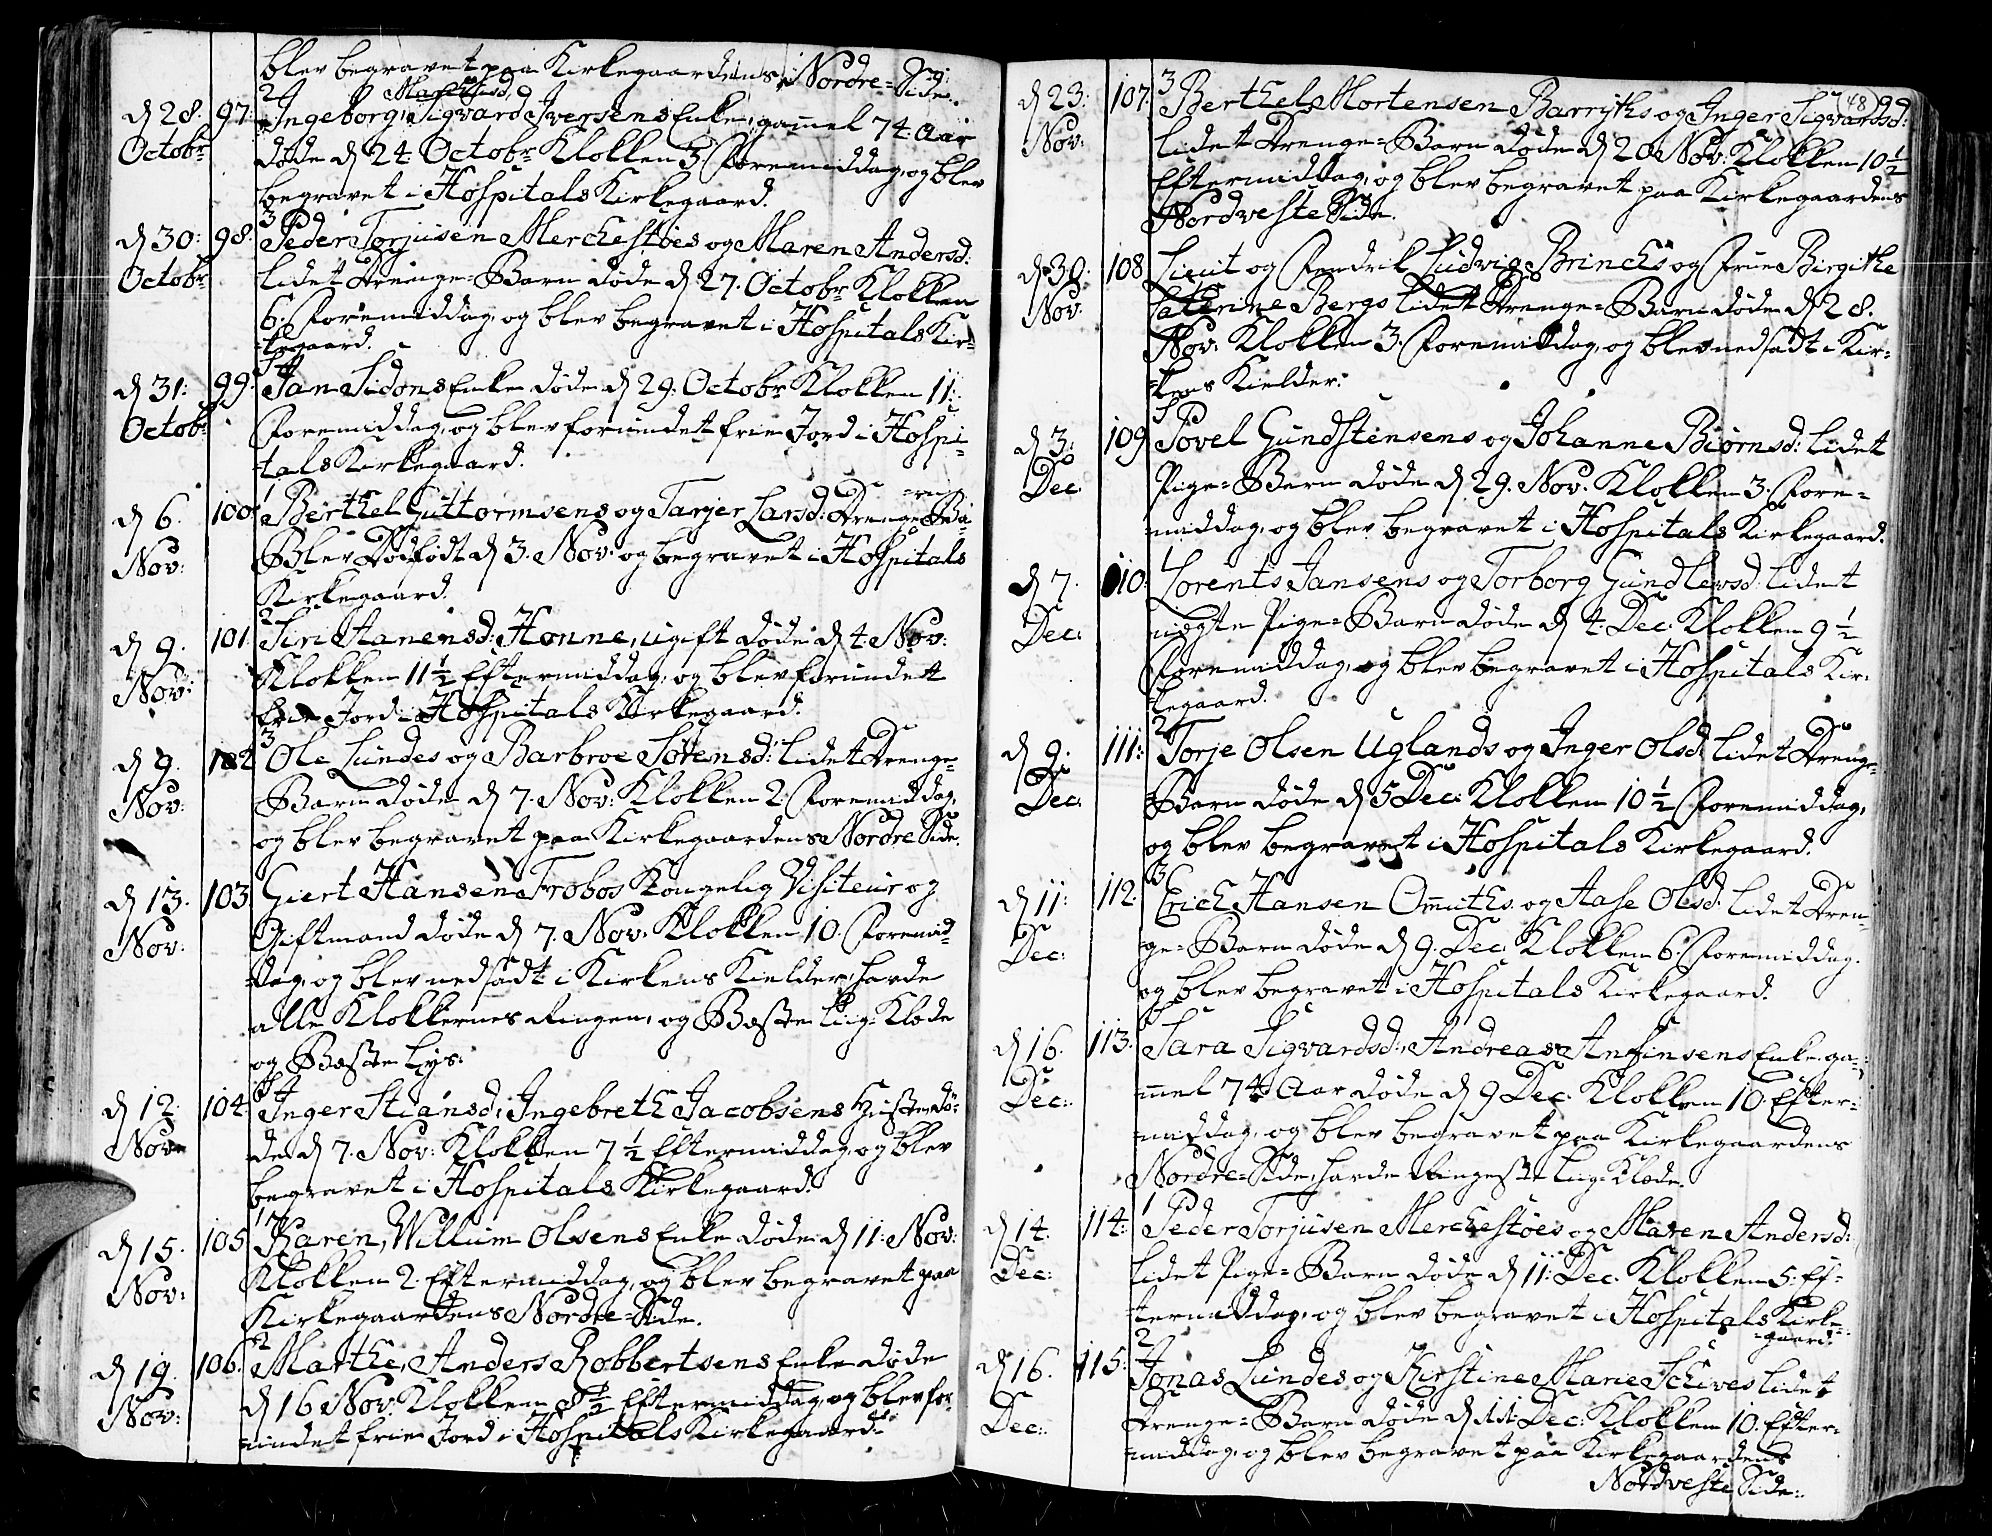 blev begravet paa Kirkegaardens Nordre=Side.
d 28. Octobr 97. 2 Ingeborg Mathisd, Sigvard Iversens Enke, gamel 74 Aar
døde d 24 Octobr Klokken 3 Foremiddag, og blev
begravet i Hospitals Kirkegaard.
d 30: Octobr 98. 3 Peder Torjusen Merchestøes og Maren Andersd.
lidet Drenge=Barn døde d 27. Octobr Klokken
6. Foremiddag, og blev begravet i Hospitals Kir=
=kegaard.
d 31: Octobr 99. Jan Sidons Enke døde d 29. Octobr Klokken 11:
Foremiddag, og blev forundet frie Jord i Hospi=
=tals Kirkegaard.
d 6. Nov: 100. 1 Berthel Guttormsens og Tarjer Larsd: Drenge=Ba
=rn
Blev Dødfødt d 3. Nov: og begravet i Hospitals
Kirkegaard.
d 9. Nov: 101. 2 Siri Aanensd: Hønne, ugift døde d 4. Nov:
Klokken 11 1/2 Eftermiddag, og blev forundet
frie Jord i Hospitals Kirkegaard.
d 9. Nov: 102 3 Ole Lundes og Barbroe Sørensd: lidet Drenge=
Barn døde d 7. Nov: Klokken 2. Foremiddag,
og blev begravet paa Kirkegaardens Nordre Side.
d 13. Nov: 103 Giert Hansen Frobos Kongelig Visiteur og
Giftmand døde d 7. Nov: Klokken 10. Foremid=
=dag, og blev nedsadt i Kirkens Kielder, havde
alle Klokkernes Ringen, og Beste Liig=Klæde
og Beste Lys.
d 12. Nov: 104. Inger Stiansd: Ingebreth Jacobsens Hustrue dø=
de d 7. Nov: Klokken 7 1/2 Eftermiddag, og blev
begravet i Hospitals Kirkegaard.
d 15. Nov: 105 1 Karen, Willum Olsens Enke døde d 11: Nov:
Klokken 2. Eftermiddag, og blev begravet paa
Kirkegaardens Nordre=Side.
d 19. Nov: 106. 2 Marthe, Anders Robbertsens Enke døde
d 16 Nov: Klokken 8 1/2 Eftermiddag, og blev for=
=undet frie Jord i Hospitals Kirkegaard.
(48) 99
d 23: Nov: 107. 3 Berthel Mortensen Barryths og Inger Sigvardsd:
lidet Drenge=Barn døde d 20 Nov: Klokken 10 1/2
Eftermiddag, og blev begravet paa Kirkegaardens
Nordveste Side.
d 30: Nov: 108 Lieut og Fendrik Ludvig Brinchs og Frue Birgithe
Catrine Bergs lidet Drenge=Barn døde d 28.
Nov: Klokken 3. Foremiddag, og blev nedsadt i Kir=
=kens Kielder.
d 3: Dec. 109 Povel Gundstensens og Johanne Biørnsd: lidet
Pige=Barn døde d 29. Nov: Klokken 3. Fore=
middag, og blev begravet i Hospitals Kirkegaard.
d 7. Dec: 110. 1 Lorents Jansens og Torborg Gundlersd: lidet
uægte Pige=Barn døde d 4. Dec: Klokken 9 1/2
Foremiddag, og blev begravet i Hospitals Kir=
=kegaard.
d 9. Dec. 111: 2 Torje Olsen Uglands og Inger Olsd: lidet Drenge=
Barn døde d 5 Dec: Klokken 10 1/2 Foremiddag,
og blev begravet i Hospitals Kirkegaard.
d 11: Dec: 112. 3 Erich Hansen Omuths og Aase Olsd: lidet Dren=
ge=Barn døde d 9. Dec: Klokken 6. Foremiddag.
og blev begravet i Hospitals Kirkegaard.
d 16. Dec: 113. Sara Sigvardsd: Andreas Anfinsens Enke, ga=
mel 74 Aar døde d 9 Dec. Klokken 10. Efter=
middag, og blev begravet paa Kirkegaardens
Nordre=Side, havde Liig=Klæde.
d 14. Dec: 114: 1 Peder Torjusen Merchestøes og Maren Andersd:
lidet Pige=Barn døde d 11: Dec. Klokken 5. Ef=
termiddag, og blev begravet i Hospitals Kirke=
=gaard.
d 16. Dec: 115: 2 Jonas Lundes og Kirstine Marie Schives lidet
Drenge=Barn døde d 11: Dec: Klokken 10. Efter=
=middag, og blev begravet paa Kirkegaardens
Nordveste Side.